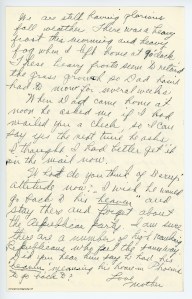 We are still having glorious
fall weather. There was a heavy
frost this morning and heavy
fog when I left home at 7 o'clock
These heavy frosts seem to retard
the grass growth so Dad hasn't
had to mow for several weeks.
When I got home at
noon he asked me if I had
mailed his check so I can
say yes the next time he asks.
I thought I had better get it
in the mail now.
What do you think of Dewey's
attitude now? I wish he would
go back to his "heaven" and
stay there and forget about
the Republican Party. I am sure
there are a number of
Republicans who feel the same way.
Did you hear him say he had his
heaven meaning his home in
to go back to?
Love
Mother